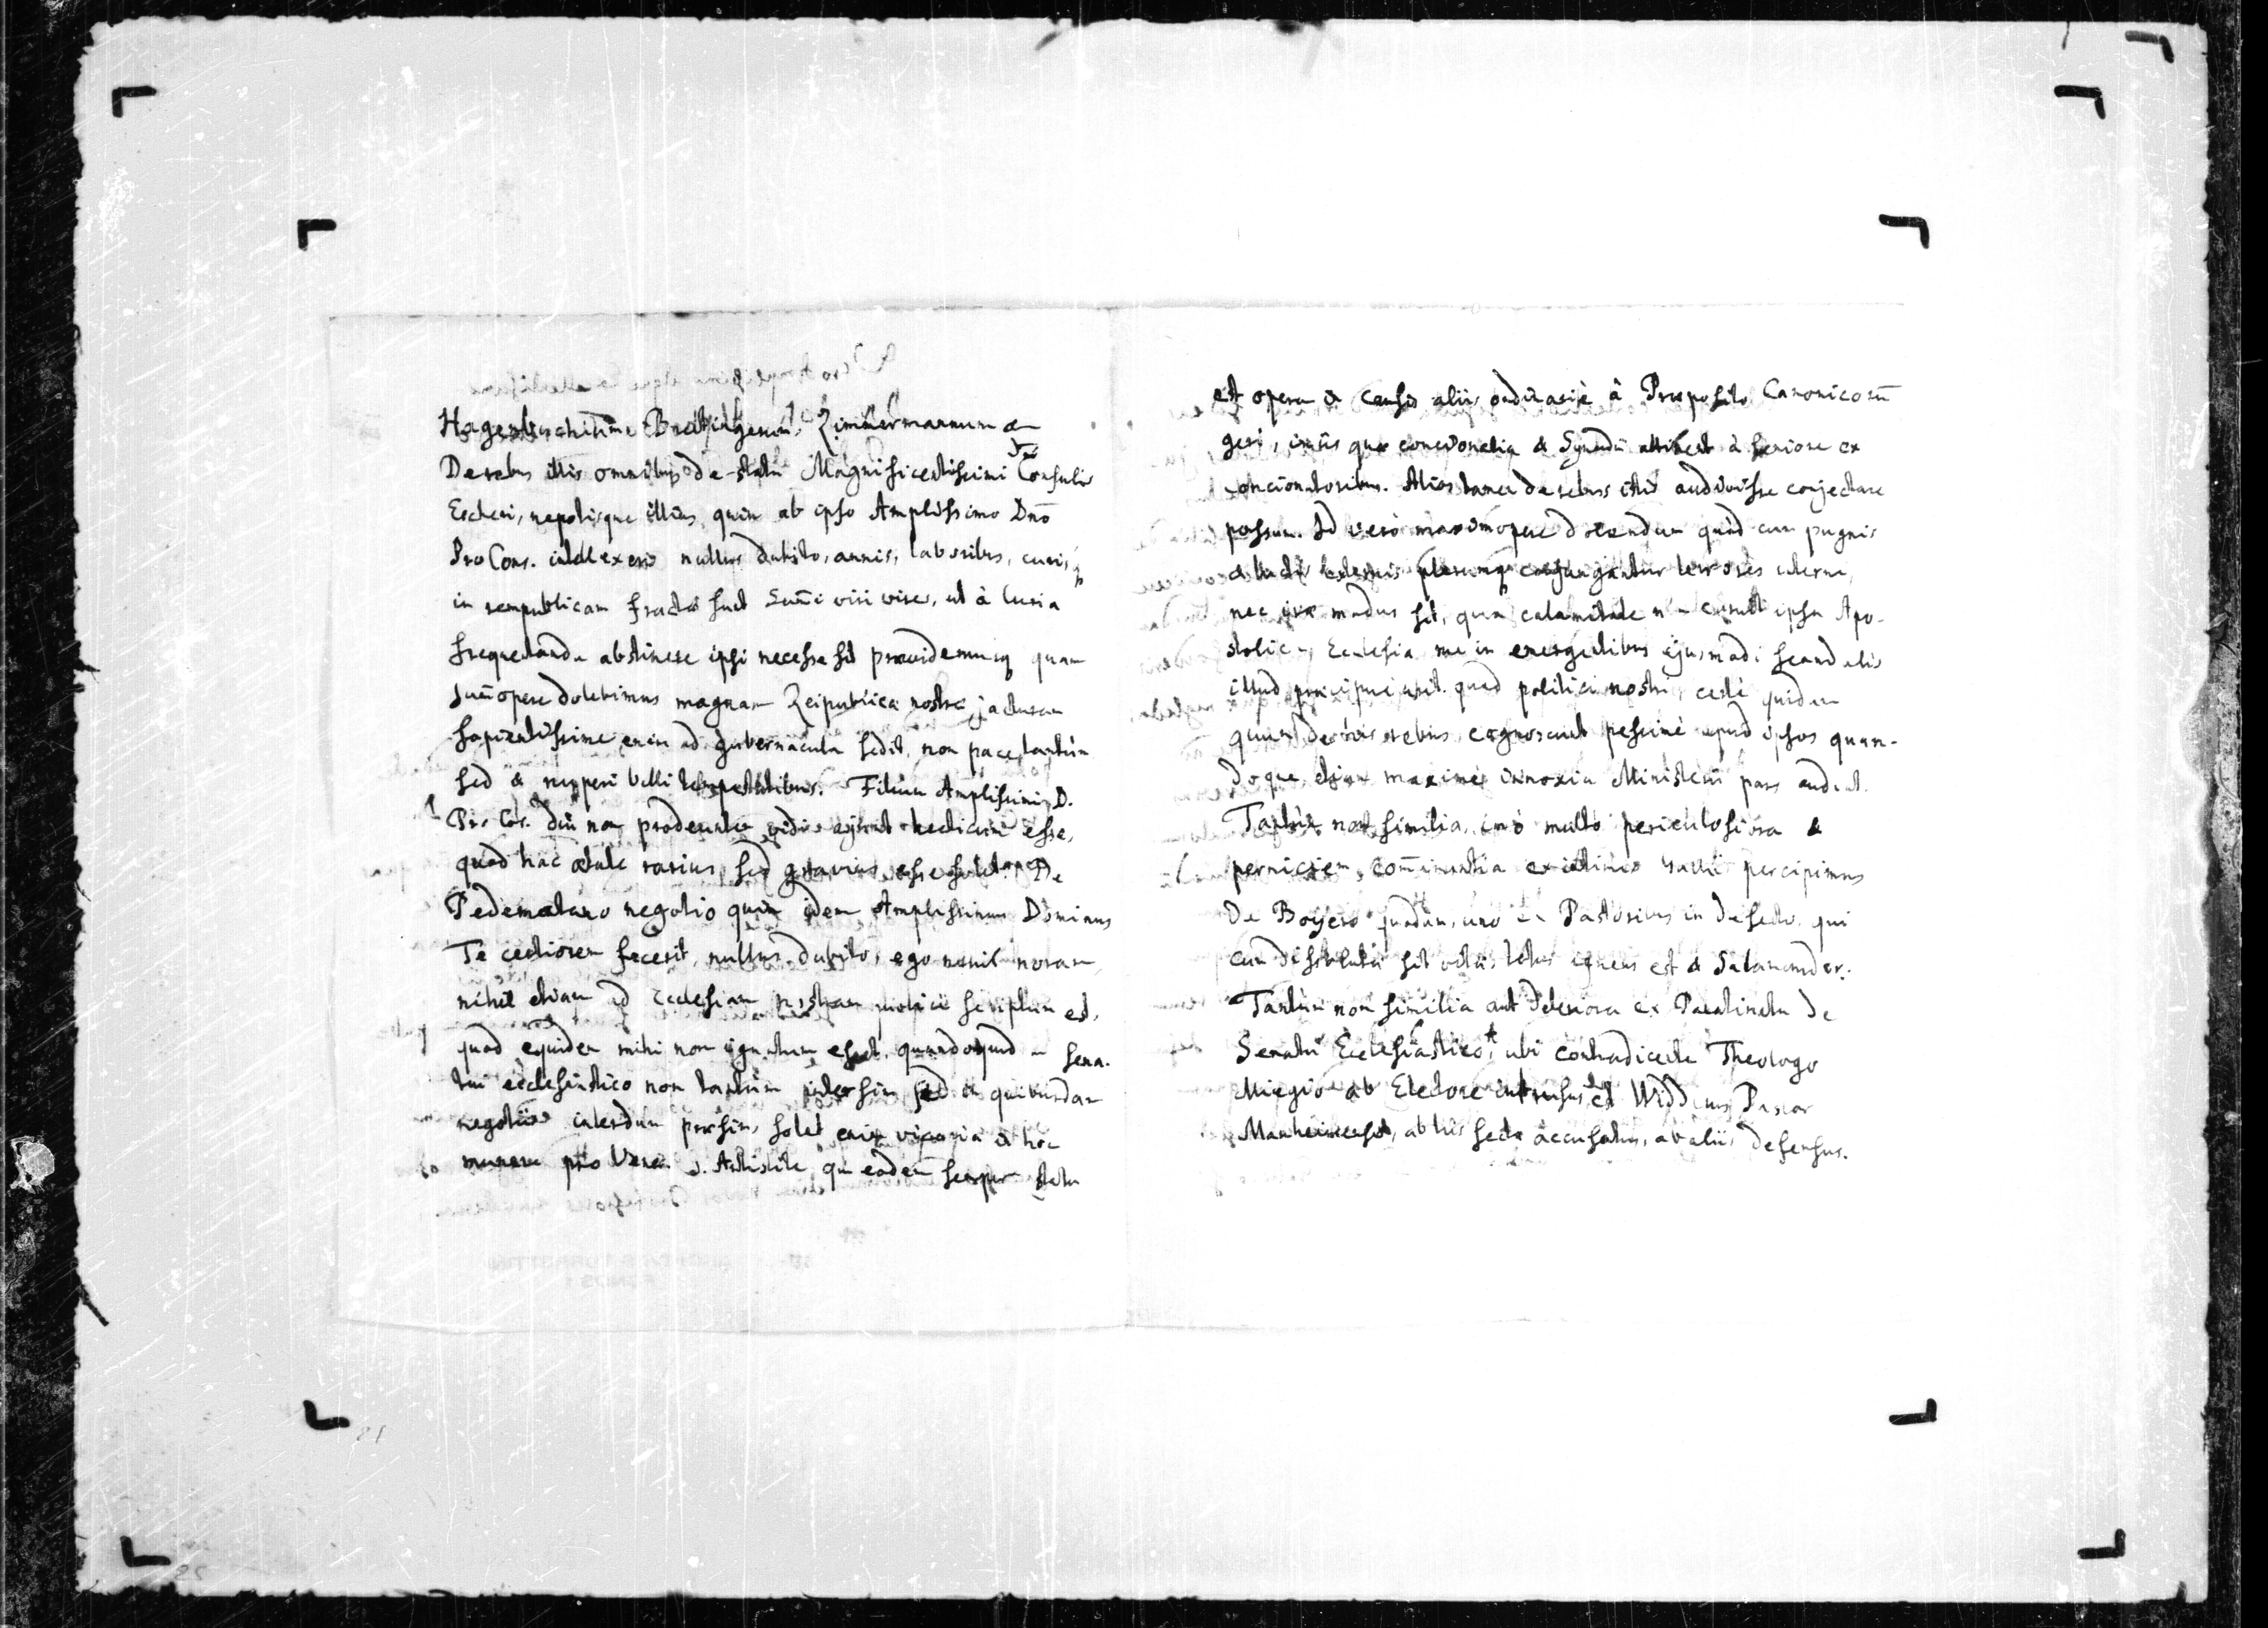 Hagenbuchium, Breitingerum, Zimmermannum &
De rebus illis omnibus de statu Magnificentissimi Consulis
Escheri, nepotisque illius, quin ab ipso Amplissimo Dno
Pro Cons. intellexeris nullus dubito, annis, laboribus, curis
in rempublicam fractae sunt viri vires, ut à Curia
frequentanda abstinere ipsi necesse sit quam
dolebimus magnam Reipublicae nostrae jacturam
sapientissime enim ad gubernacula sedit, non pace tantùm
sed & nuperi belli tempestatibus. Filium Amplissimi D.
Pro Cos. diu non prodeuntem vidi, ajunt hecticum esse,
quod hac aetate rarius, sed gravius esse solet. De
Pedemontano negotio quin idem Amplissimus Dominus
Te certiorem fecerit, nullus dubito, ego nihil noram,
nihil etiam ad Ecclesiam nostram scriptum est,
quod equidem mihi non ignotum esset, quandoquidem Sena-
tui ecclesiastico non tantùm intersim sed & quibusdam
negotiis interdum praesim, solet enim vicaria in hoc
munere pro Vener. D. Antistite, qui eodem semper statu
est opera in causis aliis ordinariè à Praeposito Canonicorū
geri, in iis quae concionatia & Synodū attinent à seniore ex
concionatoribus. Alios tamen de rebus istis audivisse conjectare
possum. Id verò maximopere dolendum quòd cum pugnis
externis plerumque conjungantur terrores interni,
nec irae modus sit, qua calamitate ipsa Apo-
stolica Ecclesia me in ejusmodi scandalis
illud praecipuè urit, quod politici nostri, certè quidem
quum de his rebus cognoscunt pessimè apud ipsos quan-
doque, etiam maximè innoxia Ministerii pars audiat.
Tantùm non similia, imò multò periculosiora &
perniciem comminantia ex percipimus
De Boÿero quodam, uno ex Pastoribus in qui
cum sit totus igneus est & Salamander.
Tantùm non similia aut deteriora ex Palatinatu de
Senatu Ecclesiastico, ubi contradicente Theologo
Miegio ab Electore intrusus est Widd us Pastor
Manheimensis, ab his accusatus, ab aliis defensus.